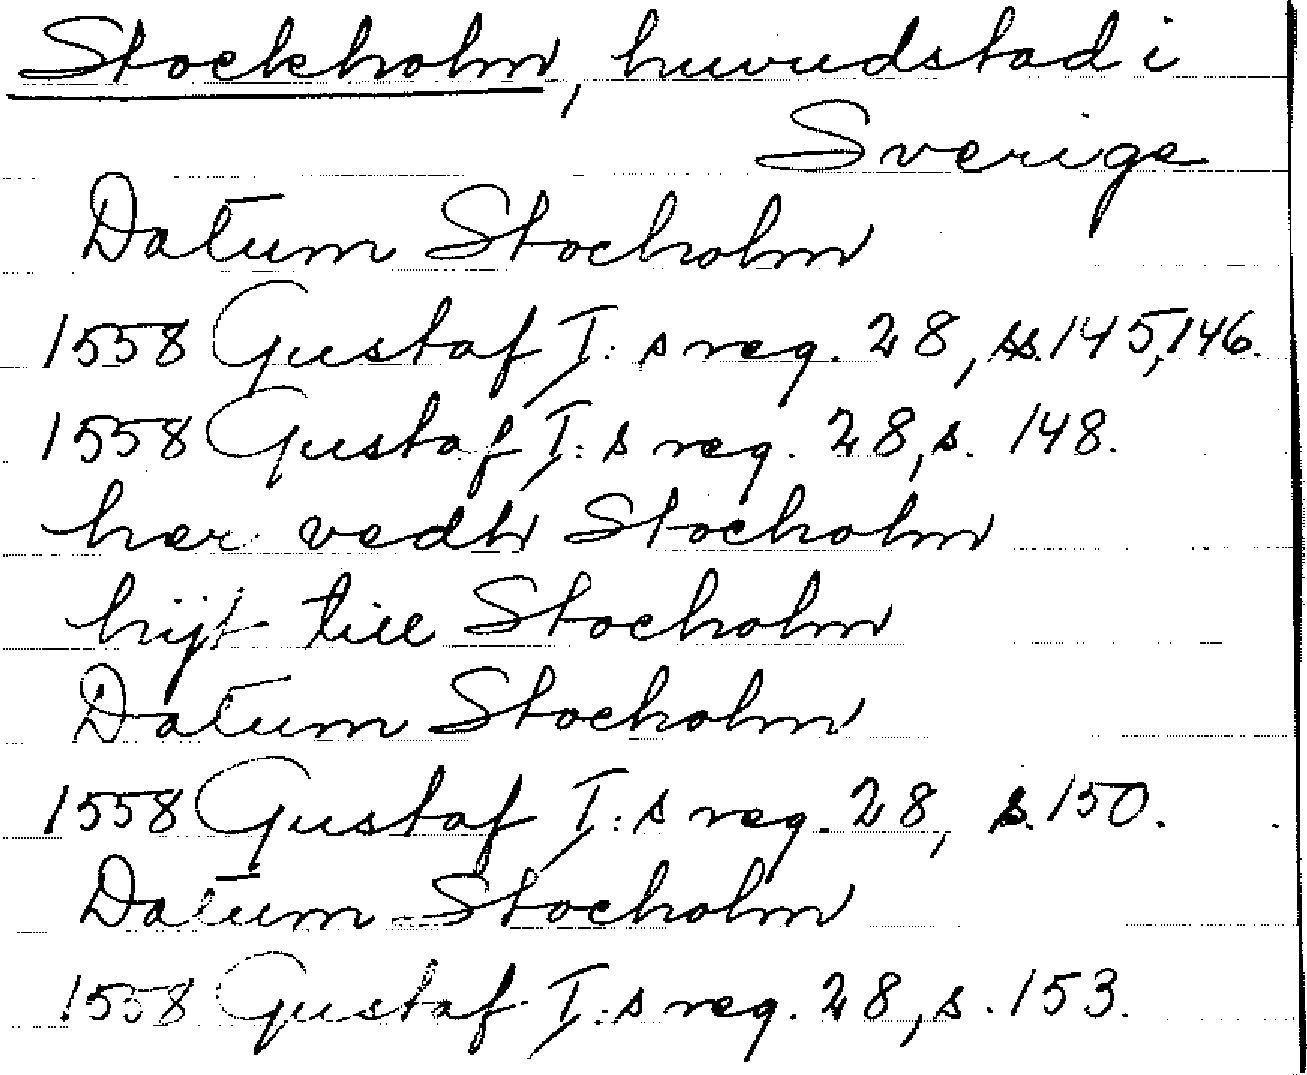 Stockholm, huvudstad i
Sverige
Datum Stocholm
1558 Gustaf I:s reg. 28, ss. 145, 146.
1558 Gustaf I:s reg. 28, s. 148.
her vedh Stocholm
hijt till Stocholm
Datum Stocholm
1558 Gustaf I:s reg. 28, s. 150.
Datum Stocholm
1558 Gustaf I:s reg. 28, s. 153.